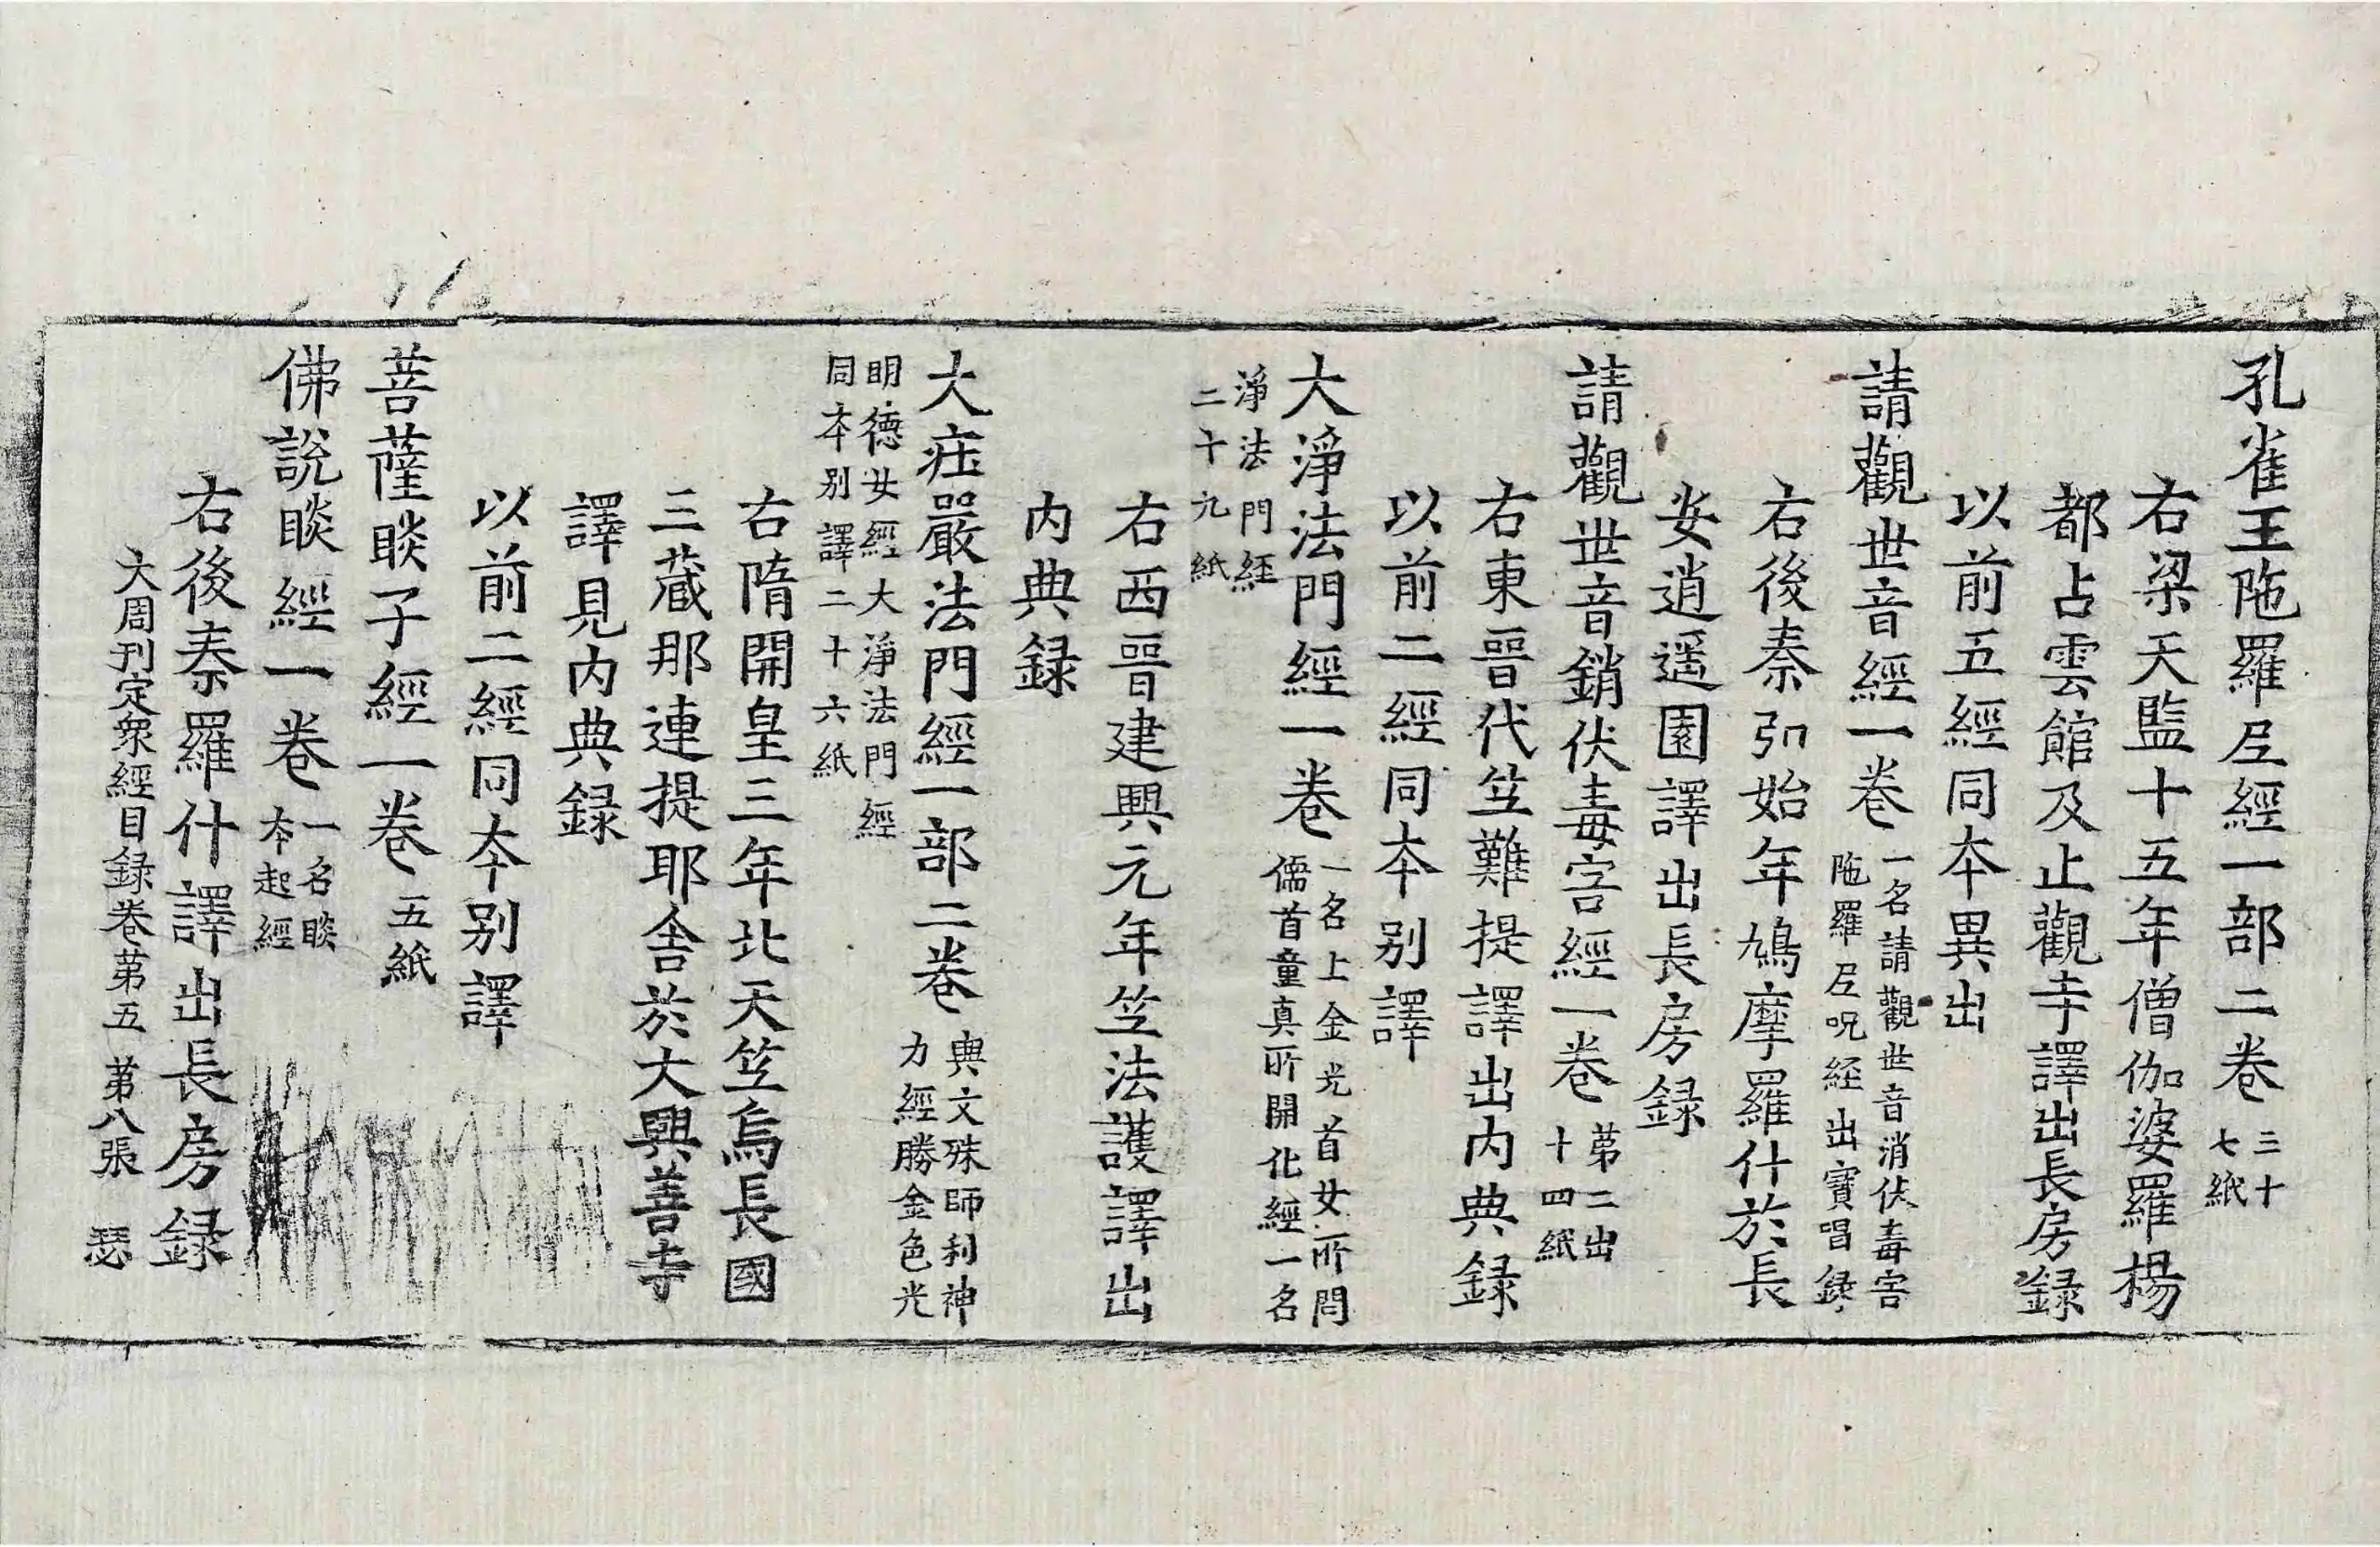 孔雀王陁羅尼經一部二卷 三十七紙
右梁天監十五年僧伽婆羅楊
都占雲館及止觀寺譯出長房録
以前五經同本異出
請觀世音經一卷 一名請觀世音消伏毒害陁羅尼呪経出寶唱録
右後秦弘始年鳩摩羅什於長
安逍遥園譯出長房録
請觀世音銷伏毒害經一卷 第二出十四紙
右東晉代竺難提譯出内典録
以前二經同本别譯
大淨法門經一卷 一名上金光首女所問儒首童真所開化經一名
淨法門経二十九紙
右西晉建興元年竺法護譯出
内典録
大庄嚴法門經一部二卷 與文殊師利神力經勝金色光
明德女經大淨法門經同本别譯二十六紙
右隋開皇三年北天竺烏長國
三藏那連提耶舎於大興善寺
譯見内典録
以前二經同本别譯
菩薩睒子經一卷 五紙
佛說睒經一卷 一名睒本起經
右後秦羅什譯出長房録
大周刊定衆經目録卷第五 第八張 瑟